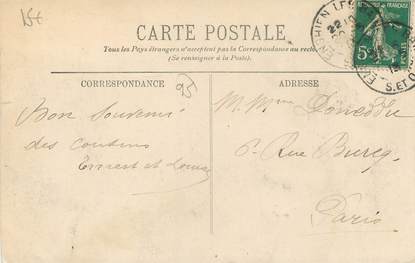 15€
CARTE POSTALE
Tous les Pays étrangers n'acceptent pas la Correspondance au recto
(Se renseigner à la Poste)
CORRESPONDANCE
95
Bon Souvenir
des cousins
Ernest et Louise
ADRESSE
M. Mme
6 Rue Burcq
Paris
ENGHIEN LES
22
S. ET O
5c
POSTES